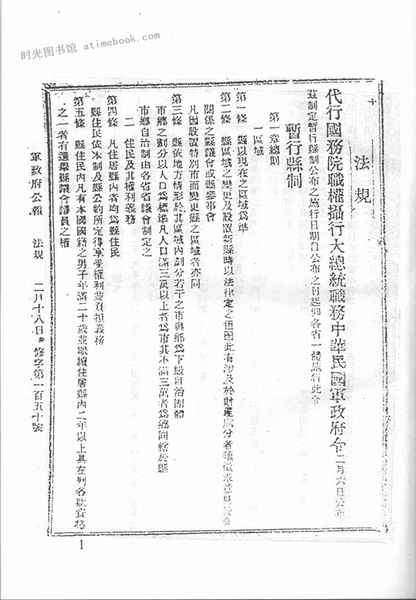 时光图书馆 atimebook.com
法規
代行國務院職權攝行大總統職務中華民國軍政府令二月六日公布
茲制定暫行縣制公布之施行日期自公布之日起卽各省一體遵行此令
暫行縣制
第一章總則
一 區域
第一條 縣以現在之區域爲準
第二條 縣區域之變更及設置新縣時以法律定之但因此有涉及於財產處分者須徵求
關係之縣議會或縣參事會
凡因設置特別市而變更縣之區域者亦同
第三條 縣依地方情形於其區域內劃分若干之市與鄉爲下級自治團體
市鄉之劃分以人口爲標準凡人口滿三萬以上者爲市其不滿三萬者爲鄉同轄於縣
市鄉自治制由各省省議會制定之
二 住民及其權利義務
第四條 凡住居縣內者均爲縣住民
縣住民依本制及縣公約所定得享受權利並負擔義務
第五條 縣住民內凡有本國國籍之男子年滿二十歲並繼續住居縣內二年以上具左列各款資格
之一者有選舉縣議會議員之權
軍政府公報 法規 二月十八日 修字第一百五十號
1